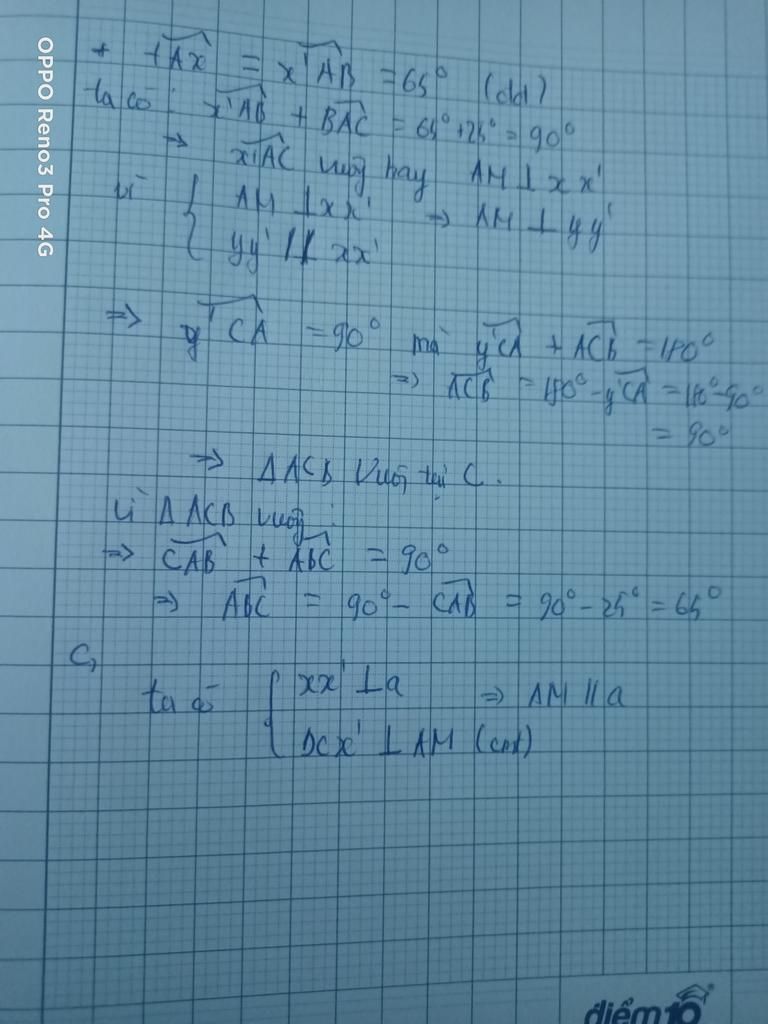 OPPO Reno3 Pro 4G
+ tAx = x'AB = 65° (đđ)
ta có : x'AB + BAC = 65° + 25° = 90°
→ x'AC vuông hay AM ⊥ xx'
vì { AM ⊥ xx' → AM ⊥ yy'
yy' // xx'
=> y'CA = 90° mà y'CA + ACB = 180°
=> ACB = 180° - y'CA = 180° - 90°
= 90°
=> ΔACB vuông tại C.
Vì ΔACB vuông :
=> CAB + ABC = 90°
=> ABC = 90° - CAB = 90° - 25° = 65°
C,
ta có { xx' ⊥ a => AM // a
xx' ⊥ AM (cmt)
điểm 10